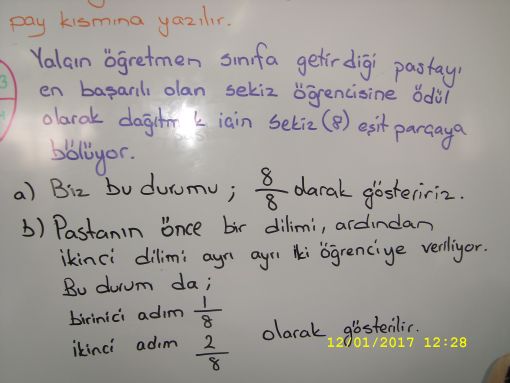 pay kısmına yazılır.
Yalçın öğretmen sınıfa getirdiği pastayı
en başarılı olan sekiz öğrencisine ödül
olarak dağıtm k için sekiz (8) eşit parçaya
bölüyor.
a) Biz bu durumu ; 8/8 olarak gösteririz.
b) Pastanın önce bir dilimi, ardından
ikinci dilimi ayrı ayrı iki öğrenciye veriliyor.
Bu durum da ;
birinici adım 1/8
ikinci adım 2/8 olarak gösterilir.
12/01/2017 12:28